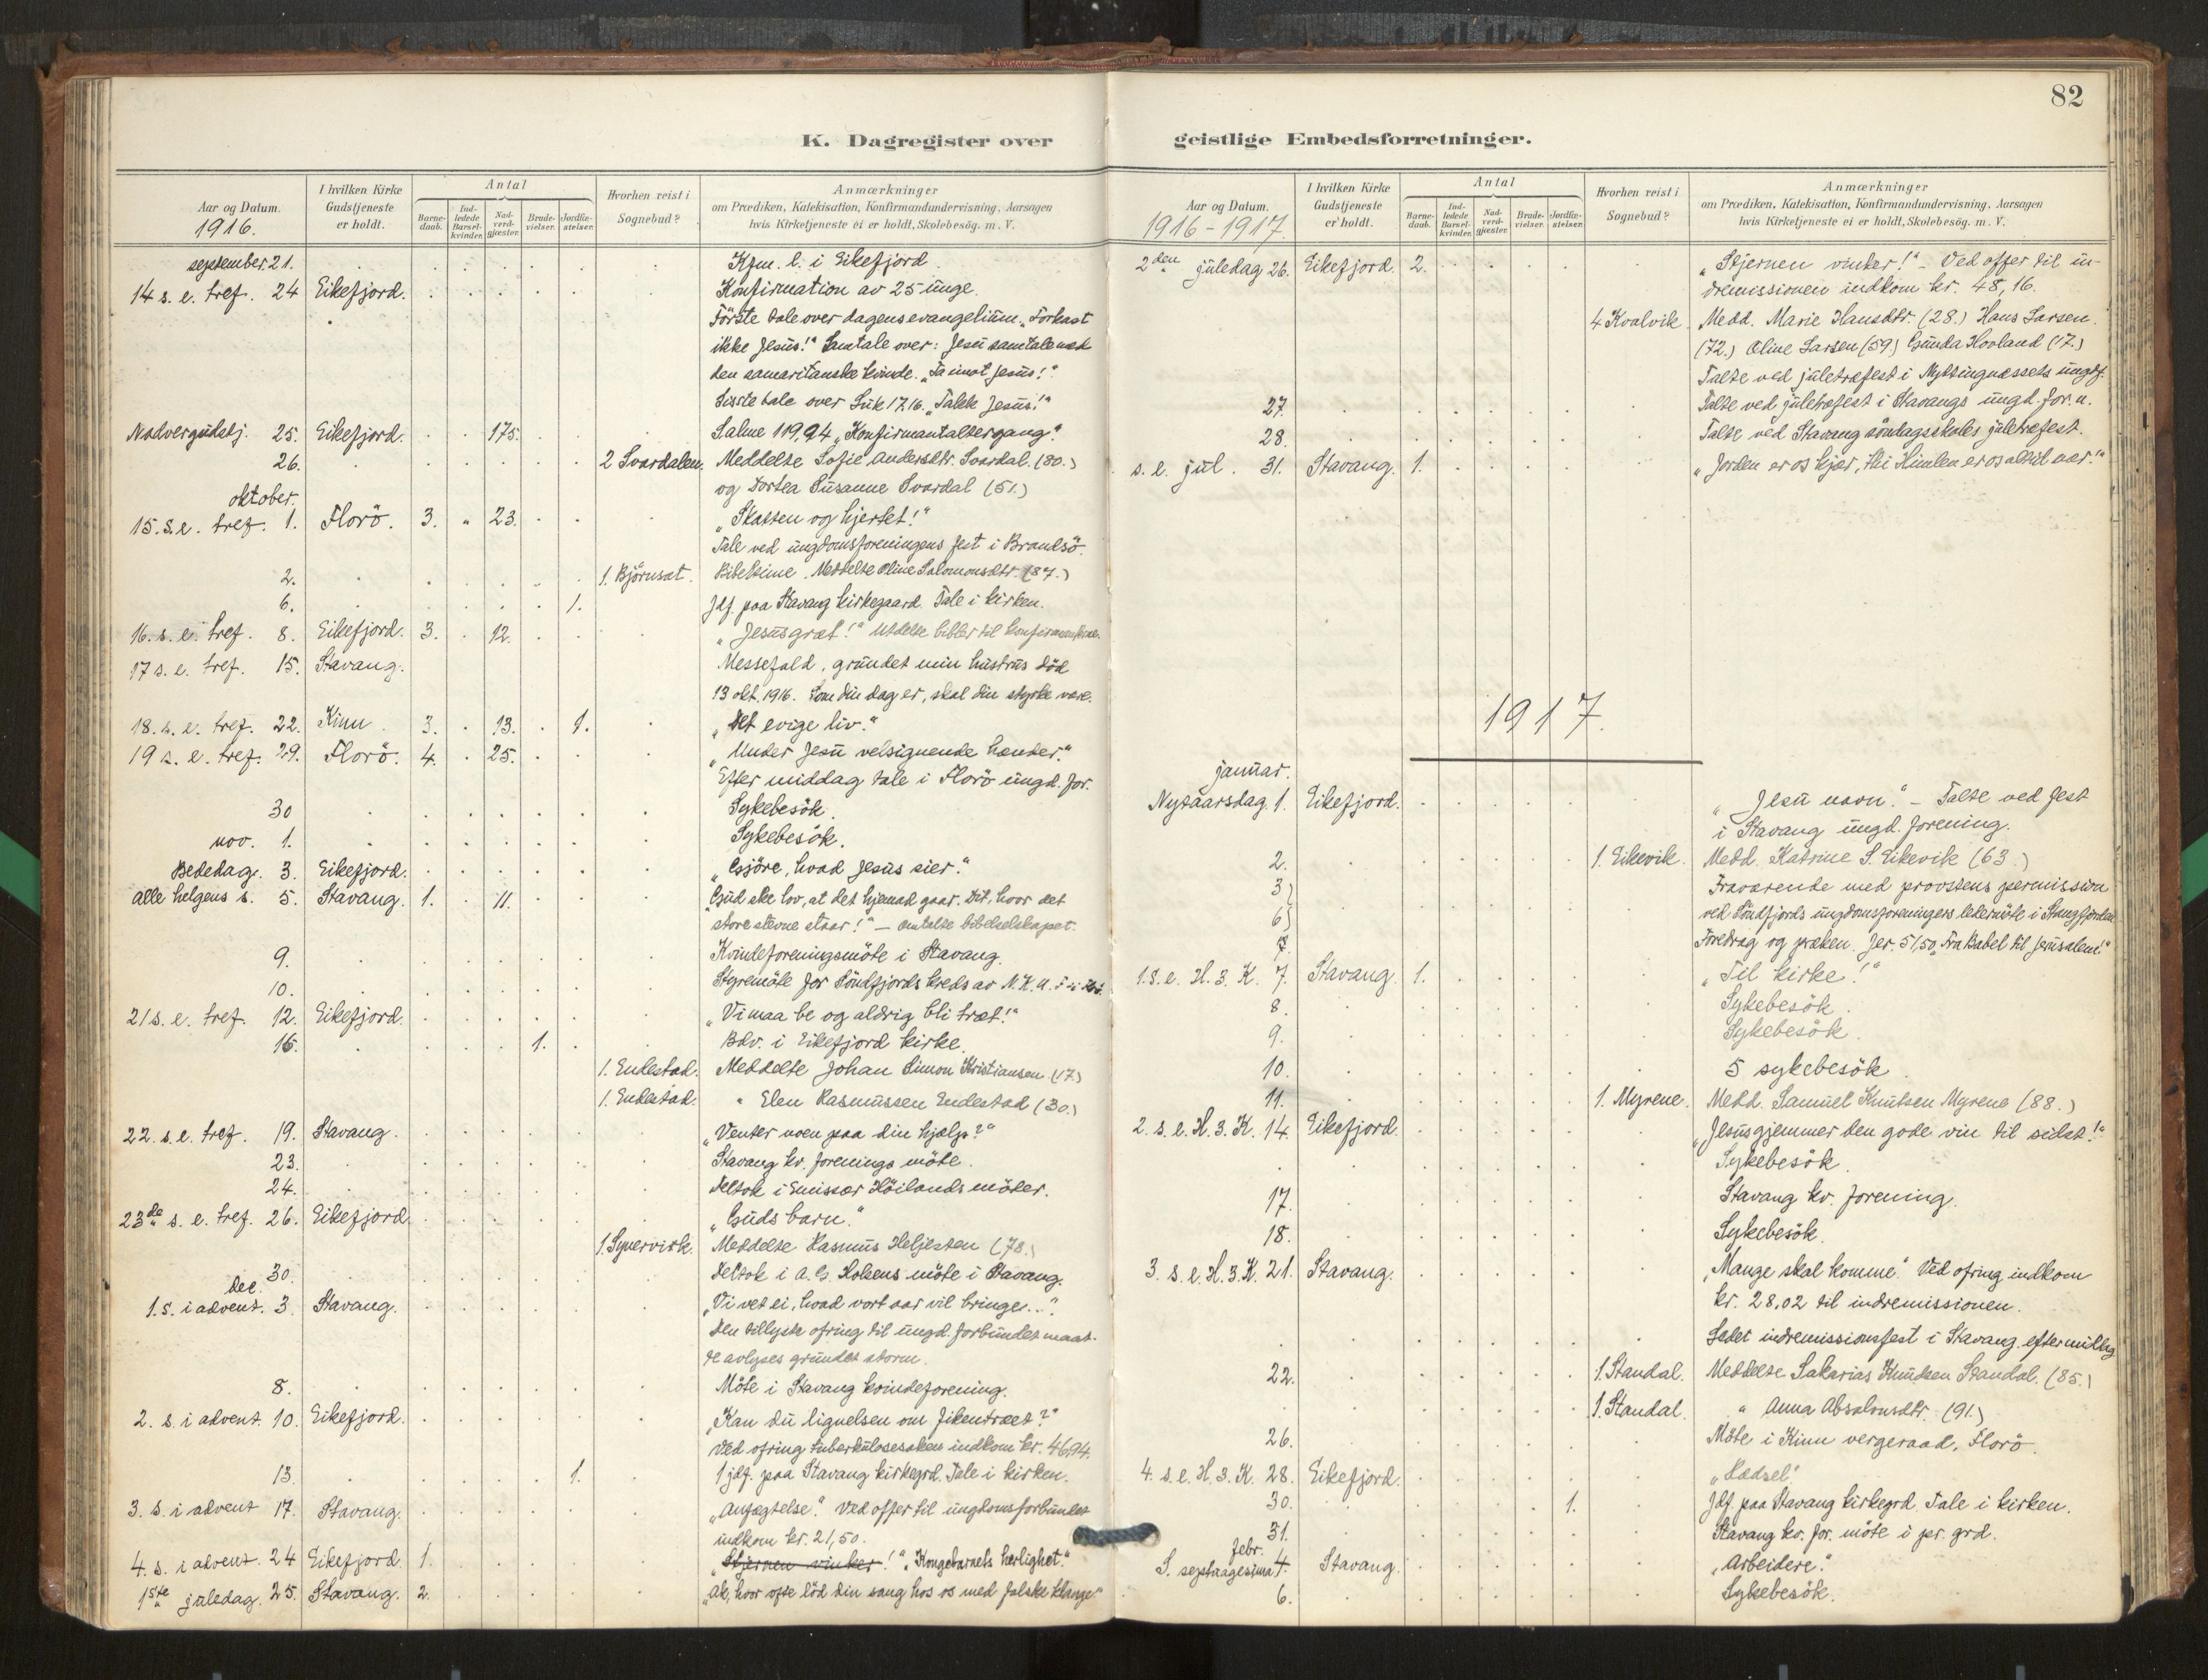 82
K. Dagregister over
geistlige Embedsforretninger.
Aar og Datum. 1916.
I hvilken Kirke Gudstjeneste er holdt.
Antal
Barne-daab. Ind-ledede Barsel-kvinder. Nad-verd-gjæster. Brude-vielser. Jordfæ-stelser.
Hvorhen reist i Sognebud?
Anmærkninger
om Prædiken, Katekisation, Konfirmandundervisning, Aarsagen
hvis Kirketjeneste ei er holdt, Skolebesög. m. V.
september. 21. Kfm. l. i Eikefjord
14 s. e. tref. 24 Eikefjord. Konfirmation av 25 unge.
Første tale over dagens evangelium. "Forkast
ikke Jesus!" Samtale over: Jesu samtale med
den samaritanske kvinde. "Ta imot Jesus!"
Sisste tale over Luk 17.16. "Takk Jesus!"
Nadvergudstj. 25. Eikefjord. 175. Salme 119,94 "Konfirmantaltergang".
26. 2 Svardalen. Meddelte Sofie Andersdtr. Svardal. (80.)
og Dortea Susanne Svardal (51.)
oktober.
15. s. e. tref. 1. Florö. 3. " 23. "Skatten og hjertet!"
Tale ved ungdomsforeningens fest i Brandsö.
2. 1. Björnset. Bibeltime. Meddelte Oline Salomonsdtr. (87.)
6. 1. Jdf. paa Stavang kirkegaard. Tale i kirken.
16. s. e. tref. 8. Eikefjord. 3. 12. "Jesusgraat!" Utdelte bibler til
17 s. e. tref. 15. Stavang. Messefald, grundet min hustrus död
13 okt. 1916. Som din dag er, skal din styrke være.
18. s. e. tref. 22. Kinn. 3. 13. 1. "Det evige liv."
19 s. e. tref. 29. Florö. 4. 25. "Under Jesu velsignende hænder."
Efter middag tale i Florö ungd. for.
30 Sykebesök.
nov. 1. Sykebesök.
Bededag. 3. Eikefjord. "Gjöre, hvad Jesus sier."
Alle helgens s. 5. Stavang. 1. 11. "Gud ske lov, at det hjemad gaar. Dit, hvor det
store stevne staar!" – omtalte bibelselskapet.
9. Kvindeforeningsmöte i Stavang.
10. Styremöte for Söndfjords kreds av N. K. U. F.
21 s. e. tref. 12. Eikefjord. "Vi maa be og aldrig bli træt!"
16. 1. Bdv. i Eikefjord kirke.
1. Endestad. Meddelte Johan Simon Kristiansen (17.)
1. Endestad. " Elen Rasmussen Endestad (30.)
22. s. e. tref. 19. Stavang. "Venter noen paa din hjælp?"
23. Stavang kv. forenings möte.
24. Deltok i Emissær Höilands möter.
23de s. e. tref. 26. Eikefjord. "Guds barn."
Meddelte Rasmus Heljesten (78.)
30. Deltok i A. G. Holsens möte i Stavang.
dec.
1. s. i advent. 3. Stavang. "Vi vet ei, hvad vort aar vil bringe..."
Den tillyste ofring til ungd. forbundet maat-
te avlyses grundet storm.
8. Möte i Stavang kvindeforening.
2. s. i advent. 10. Eikefjord. "Kan du lignelsen om fikentræet?"
Ved ofring tuberkulosesaken indkom kr. 46,94.
13. 1. 1 jdf. paa Stavang kirkegrd. Tale i kirken.
3. s. i advent 17. Stavang. "Anfægtelse." Ved offer til ungdomsforbundet
indkom kr. 21,50.
4. s. i advent. 24 Eikefjord. 1. "Stjernen vinker!" "Kongebarnets herlighet."
1ste juledag. 25. Stavang. 2. "Ak, hvor ofte löd din sang hos os med falske klange"
Aar og Datum. 1916-1917.
I hvilken Kirke Gudstjeneste er holdt.
Antal
Barne-daab. Ind-ledede Barsel-kvinder. Nad-verd-gjæster. Brude-vielser. Jordfæ-stelser.
Hvorhen reist i Sognebud?
Anmærkninger
om Prædiken, Katekisation, Konfirmandundervisning, Aarsagen
hvis Kirketjeneste ei er holdt, Skolebesög. m. V.
2den juledag 26. Eikefjord. 2. "Stjernen vinker!" – Ved offer til in-
dremissionen indkom kr. 48,16.
4 Kvalvik. Medd. Marie Hansdtr. (28.) Hans Larsen.
(72.) Oline Larsen (59) Gunda Hovland (17.)
Talte ved juletræfest i Nyttingnæssets ungdf.
27. Talte ved juletræfest i Stavangs ungd. for. u.
28. Talte ved Stavang söndagsskoles juletræfest.
s. e. jul. 31. Stavang. 1. "Jorden er os kjær, thi Himlen er os altid nær."
1917.
januar.
Nytaarsdag. 1. Eikefjord. "Jesu navn." – Talte ved fest
i Stavang ungd. forening.
2. 1. Eikevik. Medd. Katrine S. Eikevik (63.)
3) Fraværende med provstens permission
6) ved Söndfjords ungdomsforeningers ledermöte i Stangfjorden
7. Foredrag og præken. Jer. 51,50 "Fra Babel til Jerusalem!"
1. s. e. H. 3. K. 7. Stavang 1. "Til kirke!"
8. Sykebesök.
9. Sykebesök.
10. 5 sykebesök.
11. 1. Myrene. Medd. Samuel Knutsen Myrene (88.)
2. s. e. H. 3. K. 14. Eikefjord. "Jesus gjemmer den gode vin til sidst!"
Sykebesök.
17. Stavang kv. forening.
18. Sykebesök.
3. s. e. H. 3. K. 21. Stavang. "Mange skal komme." Ved ofring indkom
kr. 28,02 til indremissionen.
Ledet indremissionsfest i Stavang eftermiddag
22. 1. Standal. Meddelte Sakarias Knudsen Standal. (85.)
1. Standal. " Anna Absalonsdtr. (91.)
26. Möte i Kinn vergeraad, Florö.
4. s. e. H. 3. K. 28. Eikefjord. "Rædsel."
30. 1. Jdf. paa Stavang kirkegrd. Tale i kirken.
31. Stavang kv. for. möte i pr. grd.
febr.
S. septuagesima 4. Stavang. "Arbeidere."
6. Sykebesök.